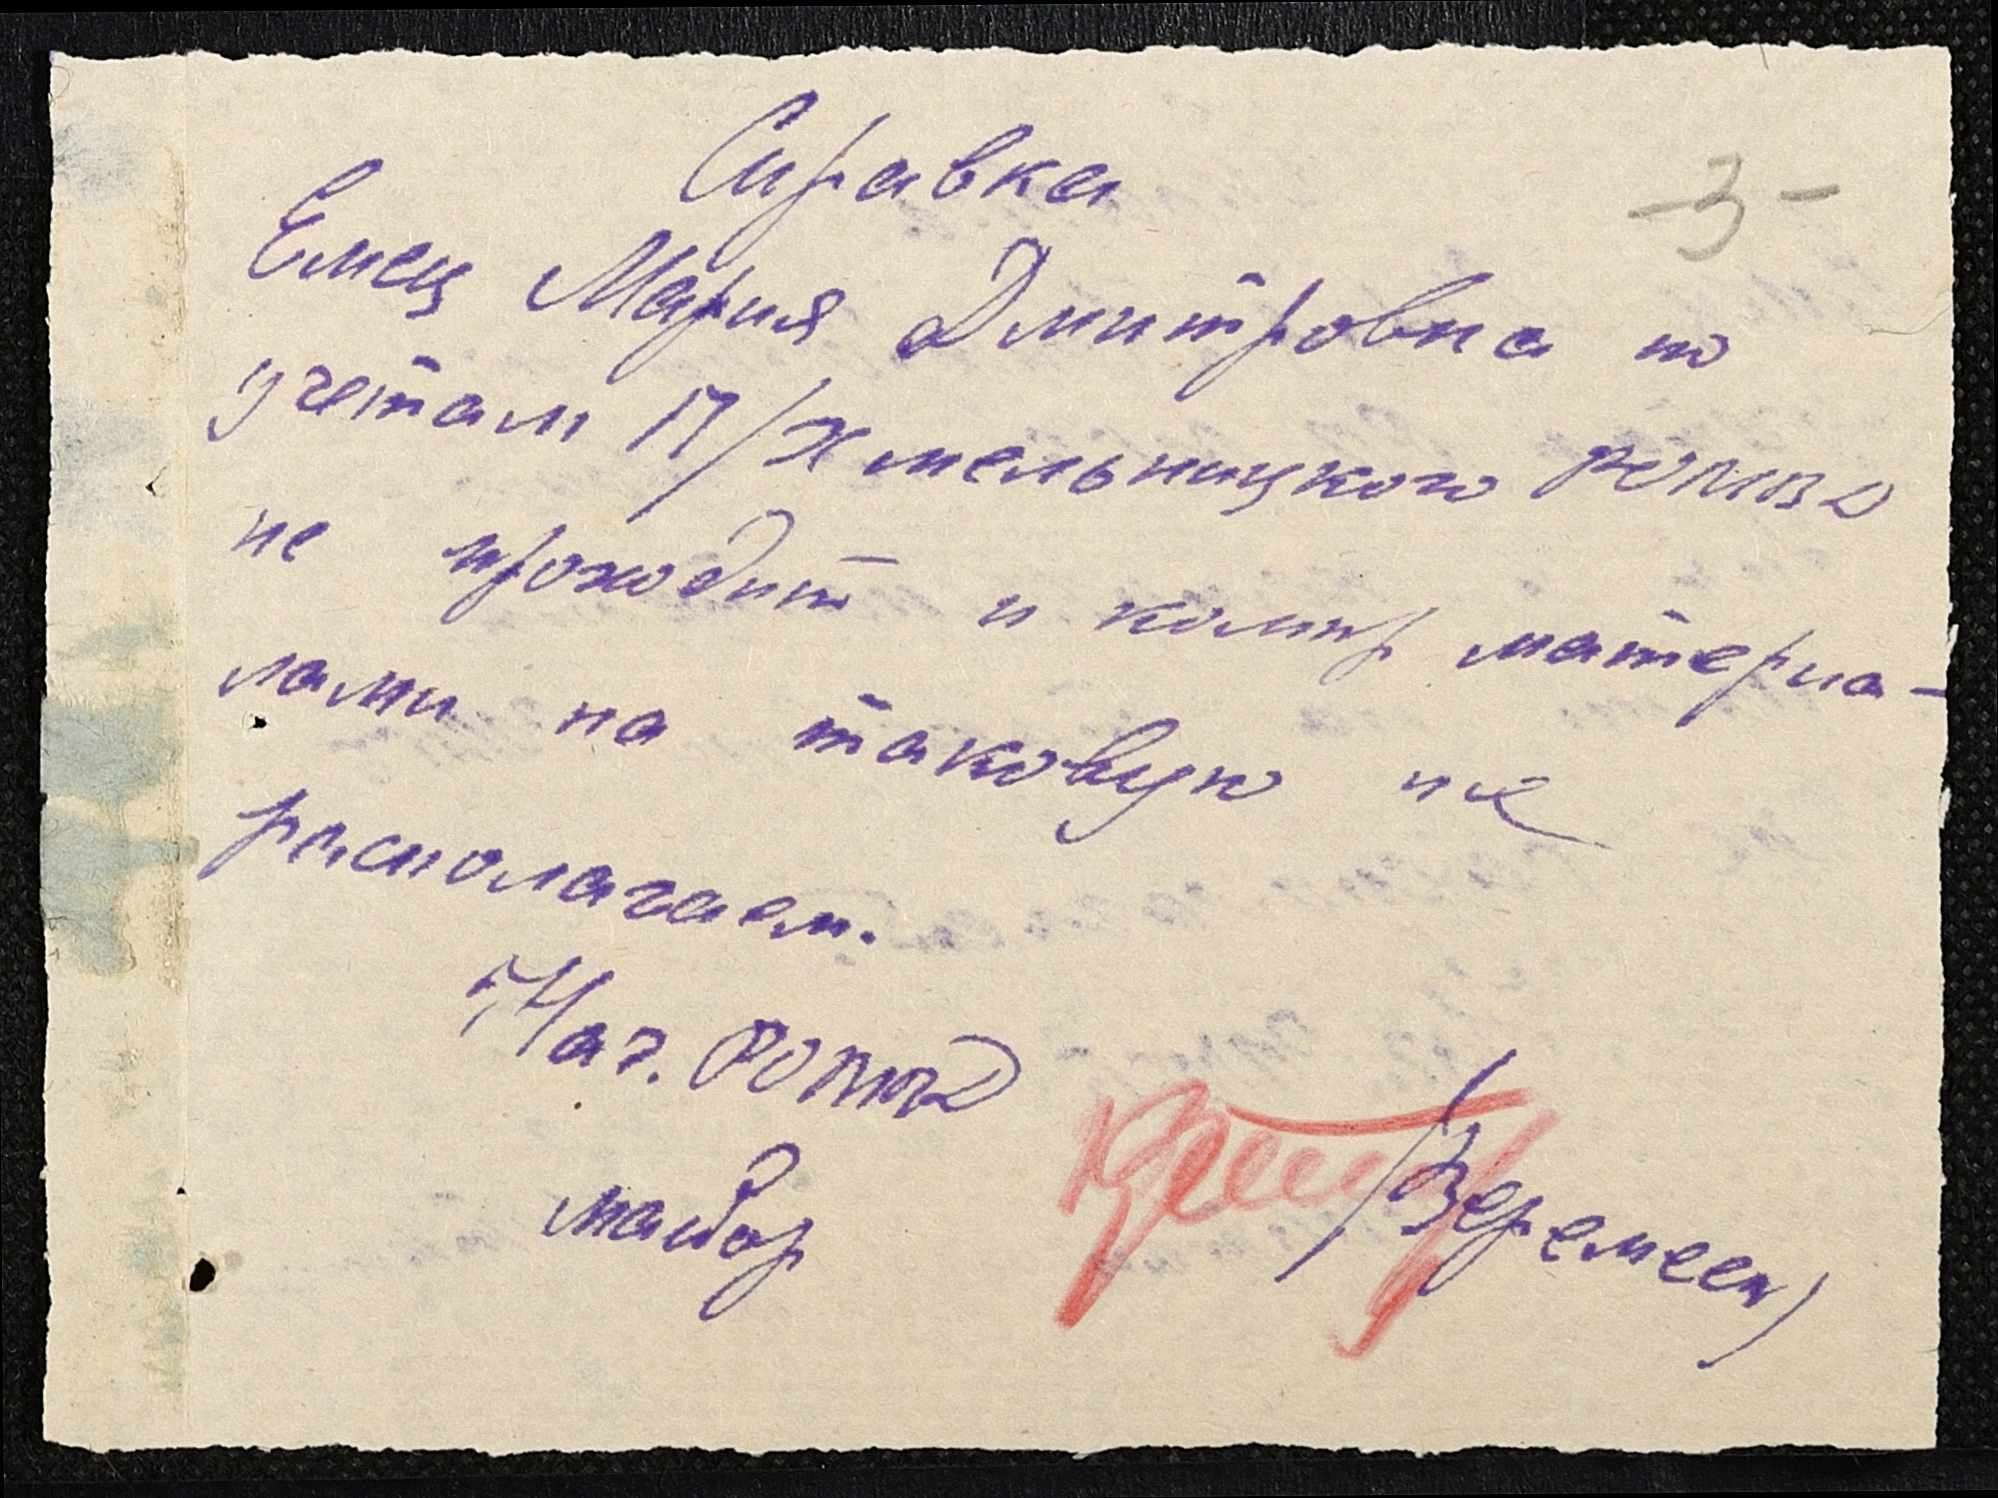 Справка
-3-
Емец Мария Дмитровна по
учетам П/Хмельницкого РОМВД
не проходит и компр материа-
лами на таковую не
располагаем.
Нач. РОМВД
майор /Веремеев/